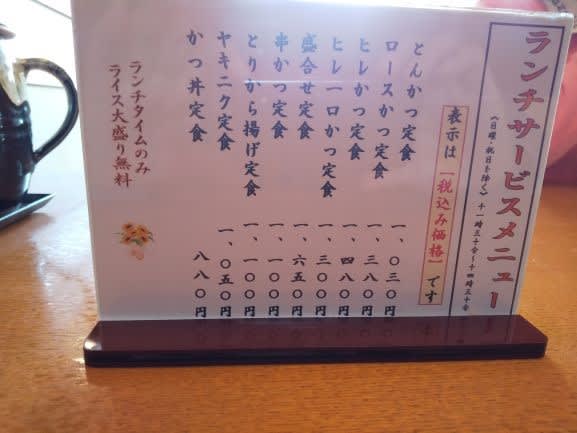 ランチサービスメニュー
(日曜・祝日を除く) 十一時三十分〜十四時三十分
表示は【税込み価格】です
とんかつ定食 一、〇三〇円
ロースかつ定食 一、三八〇円
ヒレかつ定食 一、四八〇円
ヒレ一口かつ定食 一、三〇〇円
盛合せ定食 一、六五〇円
串かつ定食 一、一〇〇円
とりから揚げ定食 一、一〇〇円
ヤキニク定食 一、〇五〇円
かつ丼定食 八八〇円
ランチタイムのみ
ライス大盛り無料